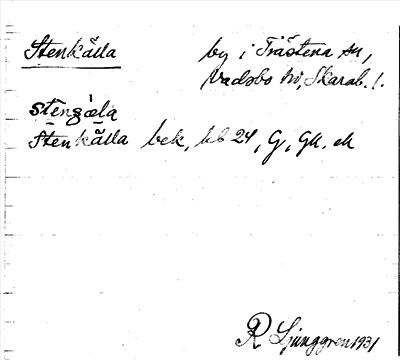 Stenkälla by i Trästena sn,
Vadsbo hd, Skarab. l.
stengæla
Stenkälla bek, hb 24, G, GU. ek
R Ljunggren 1931